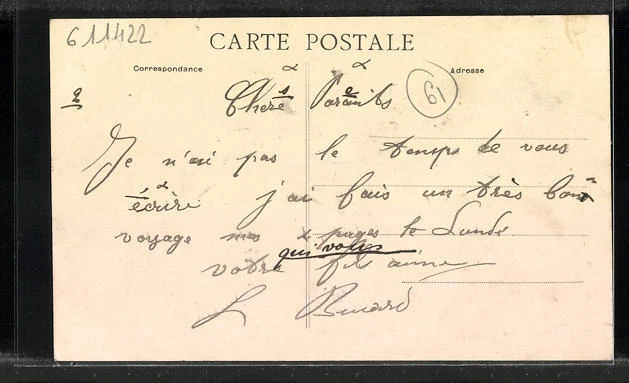 611422
CARTE POSTALE
Correspondance
Adresse
61
2
Chers Parents
Je n'ai pas le temps de vous
écrire j'ai fais un très bon
voyage mes pages le Lundi
qui
votre fils
L